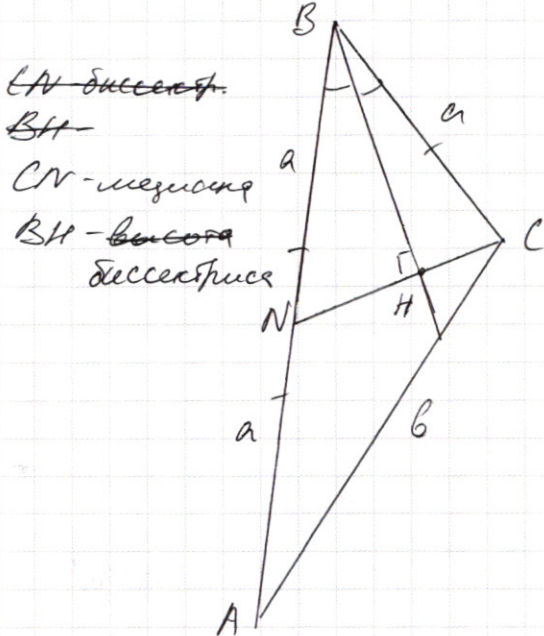 B
CN-биссектр.
BH-
CN-медиана
BH-высота
биссектриса
a
a
C
Г
H
N
a
в
A